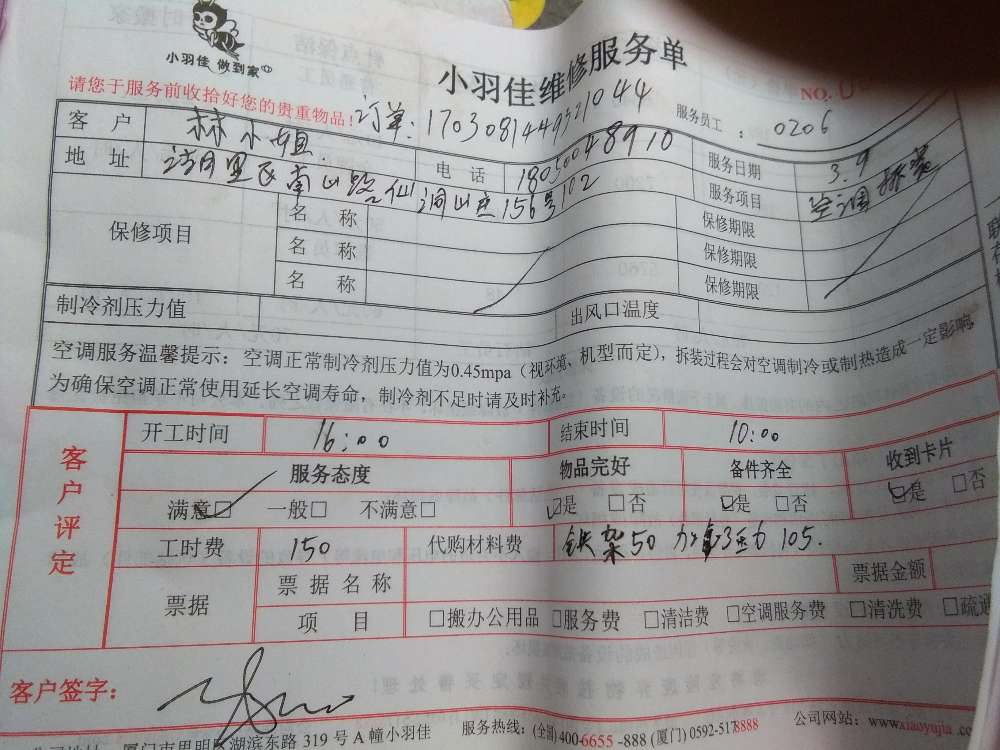 小羽佳 做到家
小羽佳维修服务单
NO.
请您于服务前收拾好您的贵重物品!
订单: 1703081449521044
服务员工 : 0206
客 户 林小姐 电 话 18050048910 服务日期 3.9
地 址 南山路仙洞山庄156号102 服务项目 空调
保修项目 名 称 保修期限
名 称 保修期限
名 称 保修期限
制冷剂压力值 出风口温度
空调服务温馨提示: 空调正常制冷剂压力值为0.45mpa (视环境、机型而定), 拆装过程会对空调制冷或制热造成一定影响。
为确保空调正常使用延长空调寿命, 制冷剂不足时请及时补充。
客户评定
开工时间 16:00 结束时间 10:00
服务态度 物品完好 备件齐全 收到卡片
满意□ 一般□ 不满意□ □是 □否 □是 □否 □是 □否
工时费 150 代购材料费 铁架50 105.
票据 票据名称 票据金额
项 目 □搬办公用品 □服务费 □清洁费 □空调服务费 □清洗费 □疏通
客户签字:
公司地址: 厦门市思明区湖滨东路 319 号 A 幢小羽佳 服务热线: (全国) 400-6655-888 (厦门) 0592-5178888 公司网站: www.xiaoyujia.com